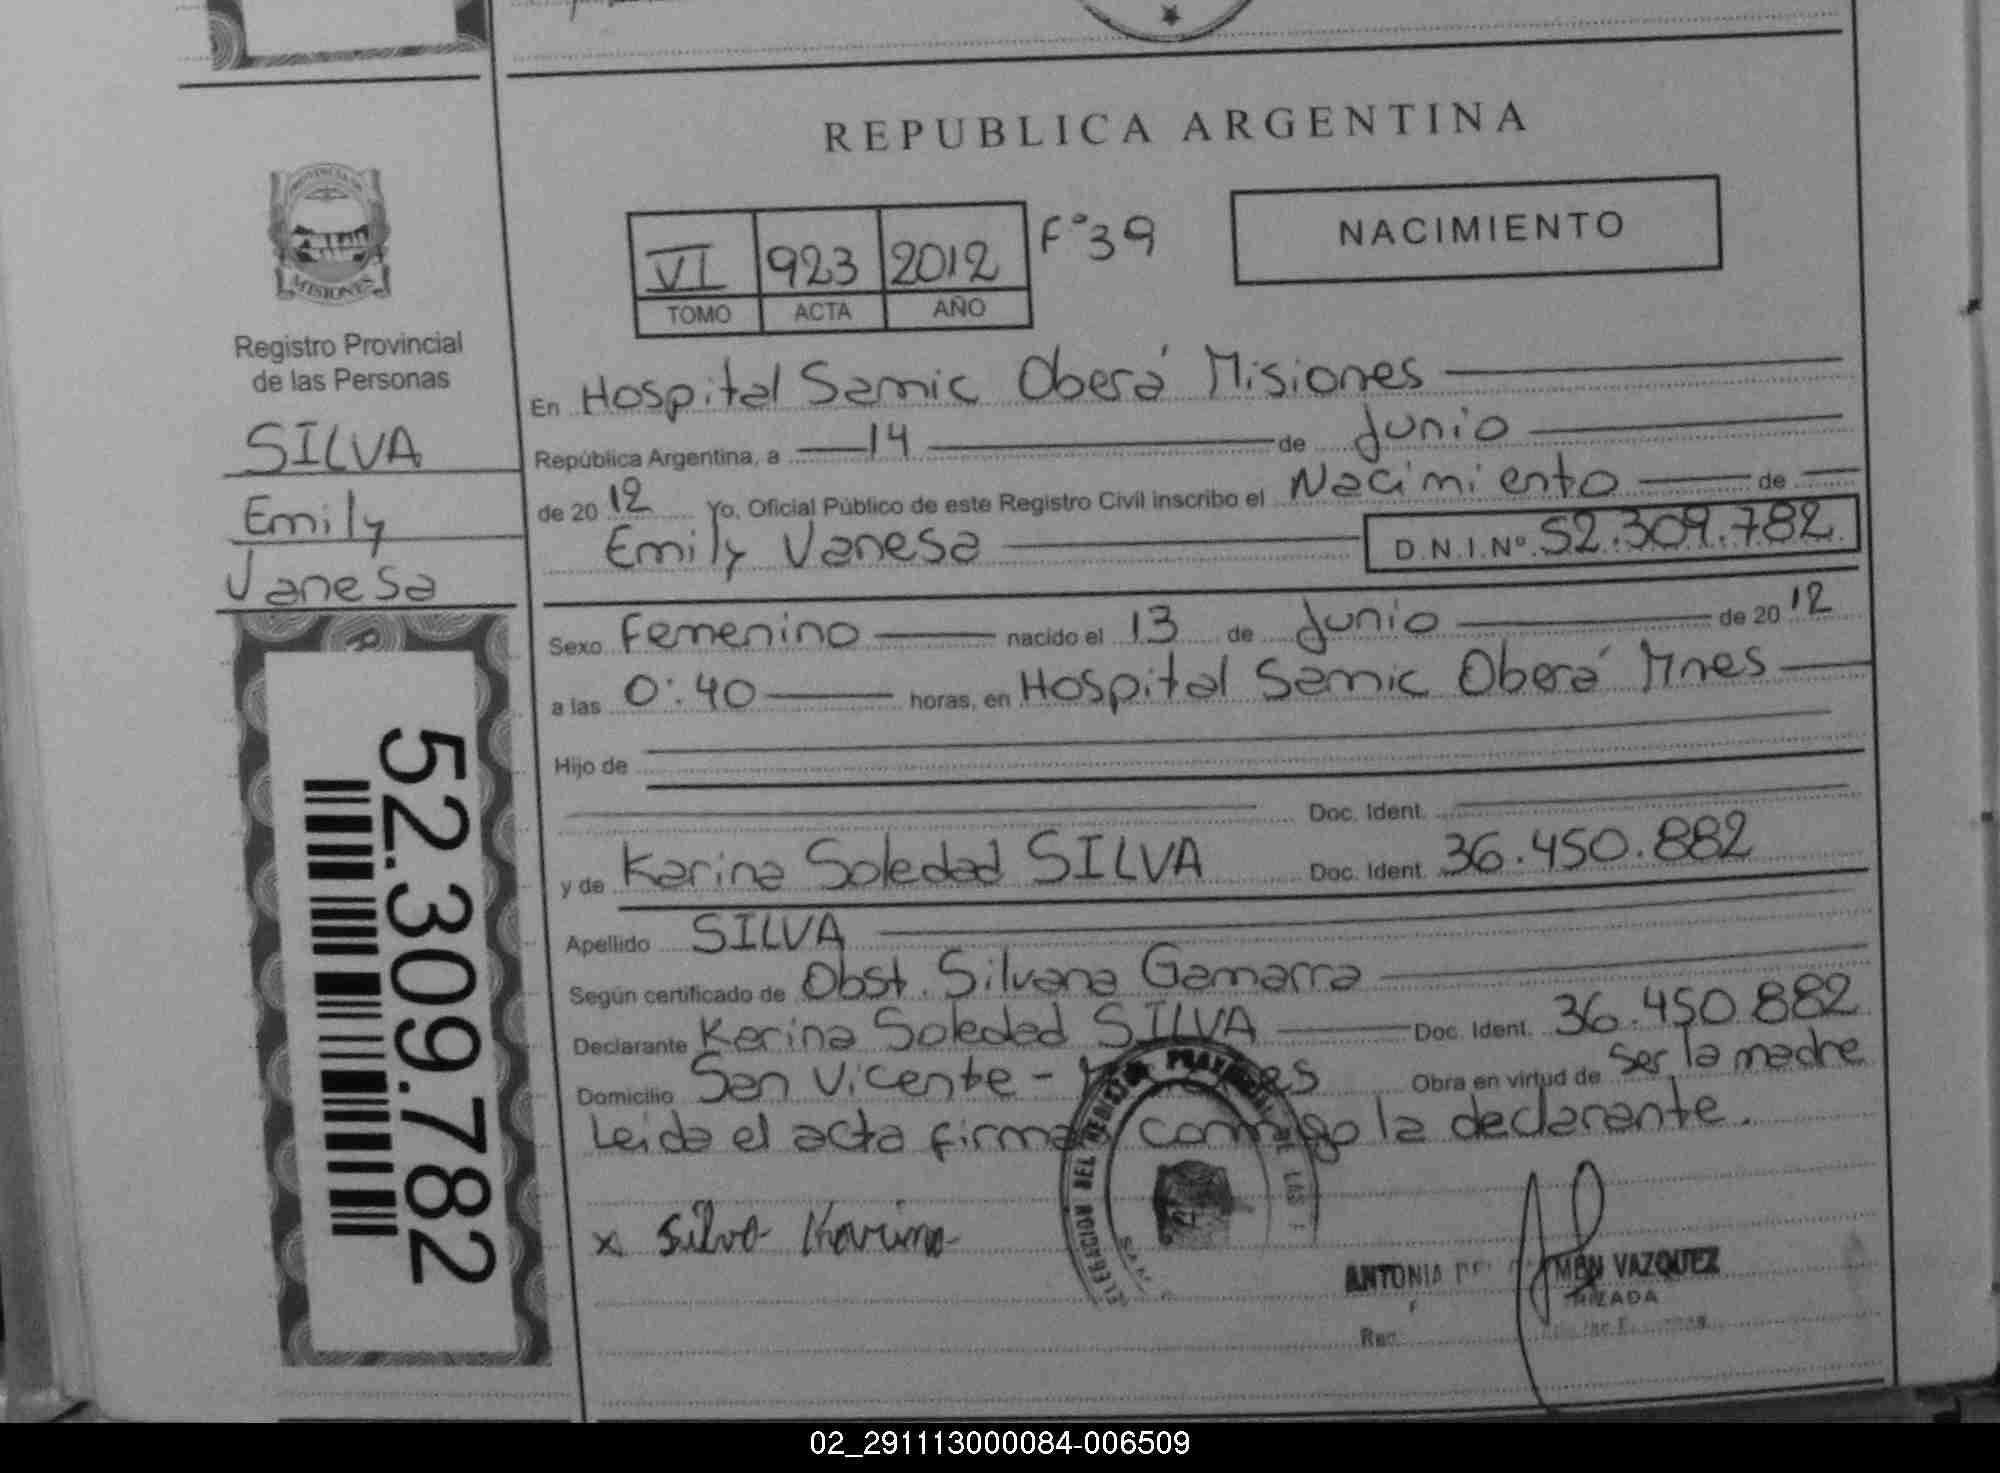 REPUBLICA ARGENTINA
PROVINCIA DE
MISIONES
Registro Provincial
de las Personas
SILVA
Emily
Vanesa
52.309.782
VI 923 2012 Fº39
TOMO ACTA AÑO
NACIMIENTO
En Hospital Samic Oberá Misiones
República Argentina, a 14 de Junio
de 2012 Yo, Oficial Público de este Registro Civil inscribo el Nacimiento de
Emily Vanesa D.N.I.Nº 52.309.782
Sexo Femenino nacido el 13 de Junio de 2012
a las 0:40 horas, en Hospital Samic Oberá Mnes
Hijo de
Doc. Ident.
y de Karina Soledad SILVA Doc. Ident. 36.450.882
Apellido SILVA
Según certificado de Obst. Silvana Gamarra
Declarante Karina Soledad SILVA Doc. Ident. 36.450.882
Domicilio San Vicente - Obra en virtud de ser la madre
Leida el acta firma conmigo la declarante.
x Silva Karina
DELEGACION DEL REGISTRO PROVINCIAL DE LAS
ANTONIA VAZQUEZ
02_291113000084-006509